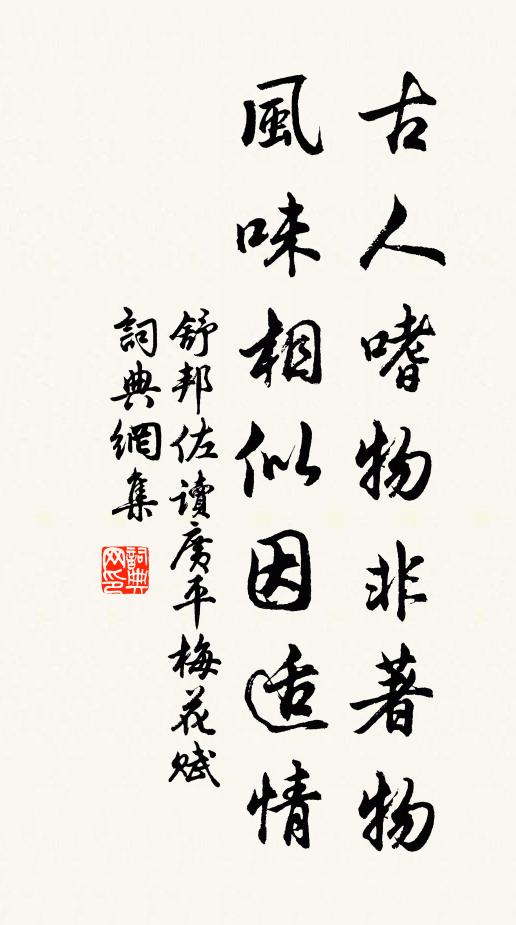 古人嗜物非著物
風味相似因适情
舒邦佐讀廣平梅花賦
詞典網集
詞典網印